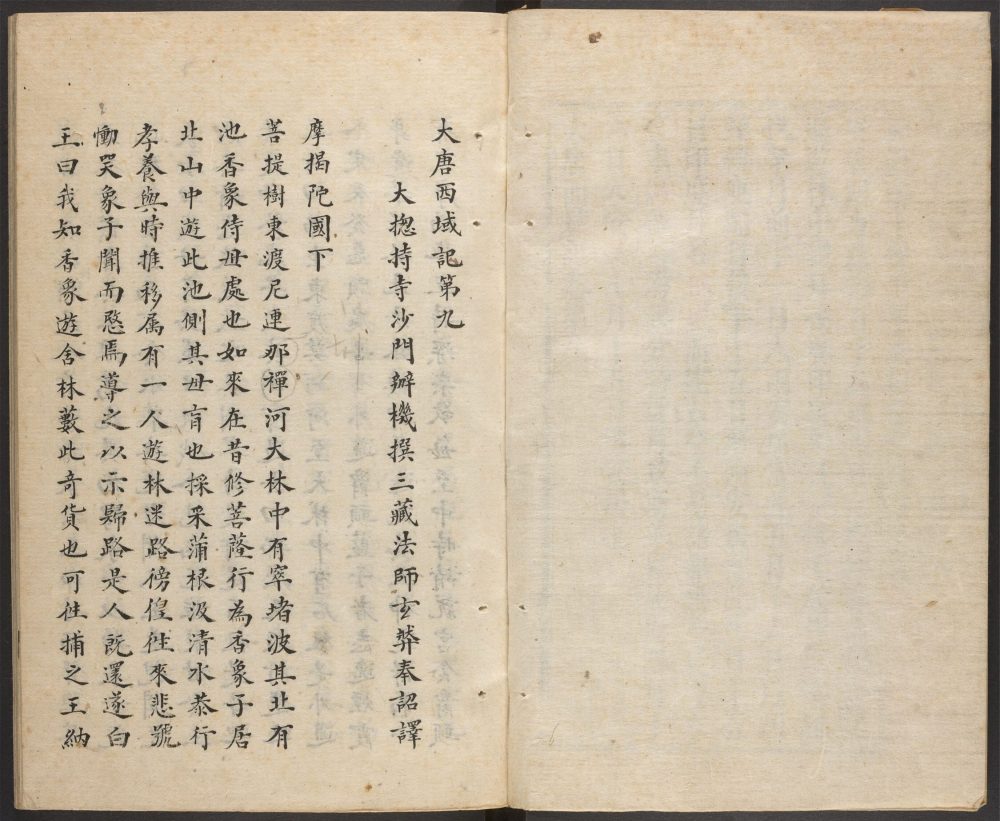 大唐西域記第九
大揔持寺沙門辯機撰三藏法師玄奘奉詔譯
摩揭陁國下
菩提樹東渡尼連那禪河大林中有窣堵波其北有
池香象侍毋處也如來在昔修菩薩行為香象子居
北山中遊此池側其毋盲也採采蒲根汲清水恭行
孝養與時推移属有一人遊林迷路徬徨徃來悲號
慟哭象子聞而愍焉導之以示歸路是人既還遂白
王曰我知香象遊舍林藪此奇貨也可徃捕之王納